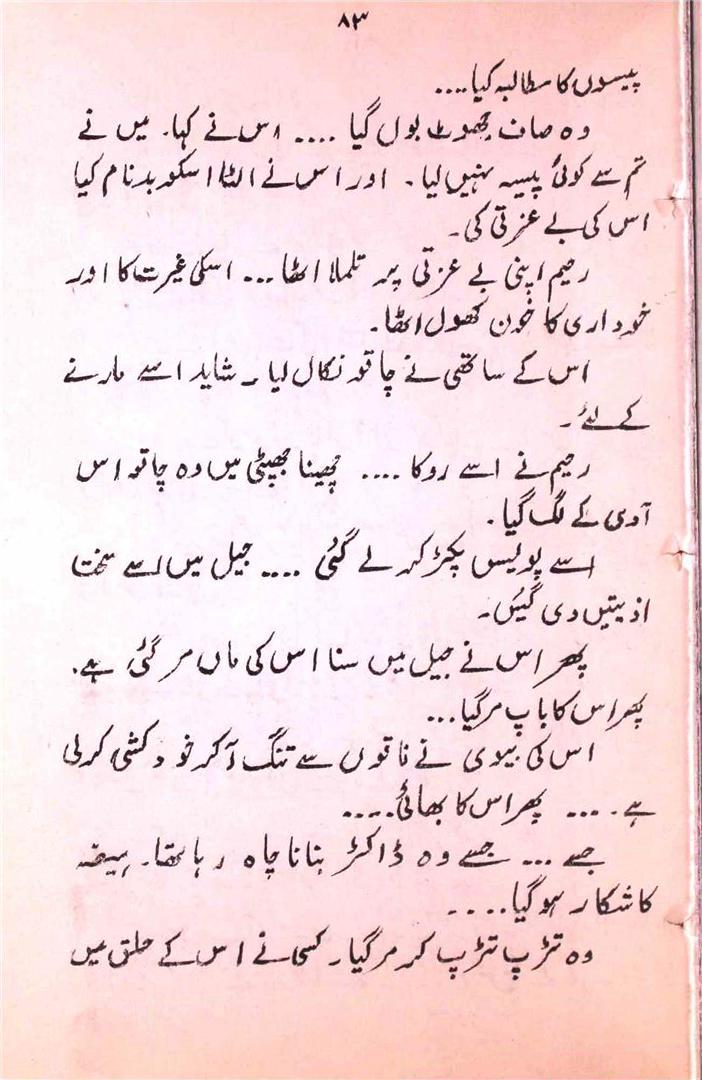 ۸۳
پیسوں کا مطالبہ کیا....
وہ صاف جھوٹ بول گیا .... اس نے کہا۔ میں نے
تم سے کوئی پیسہ نہیں لیا۔ اور اس نے الٹا اسکو بدنام کیا
اس کی بے عزتی کی۔
رحیم اپنی بے عزتی پر تلملا اٹھا... اسکی غیرت کا اور
خود داری کا خون کھول اٹھا۔
اس کے ساتھی نے چاقو نکال لیا۔ شاید اسے مارنے
کے لئے۔
رحیم نے اسے روکا .... چھینا جھپٹی میں وہ چاقو اس
آدمی کے لگ گیا۔
اسے پولیس پکڑ کر لے گئی .... جیل میں اسے سخت
اذیتیں دی گئیں۔
پھر اس نے جیل میں سنا اس کی ماں مر گئی ہے۔
پھر اس کا باپ مر گیا...
اس کی بیوی نے فاقوں سے تنگ آکر خود کشی کرلی
ہے۔ ... پھر اس کا بھائی.....
جسے ... جسے وہ ڈاکٹر بنانا چاہ رہا تھا۔ ہیضہ
کا شکار ہوگیا....
وہ تڑپ تڑپ کر مرگیا۔ کسی نے اس کے حلق میں